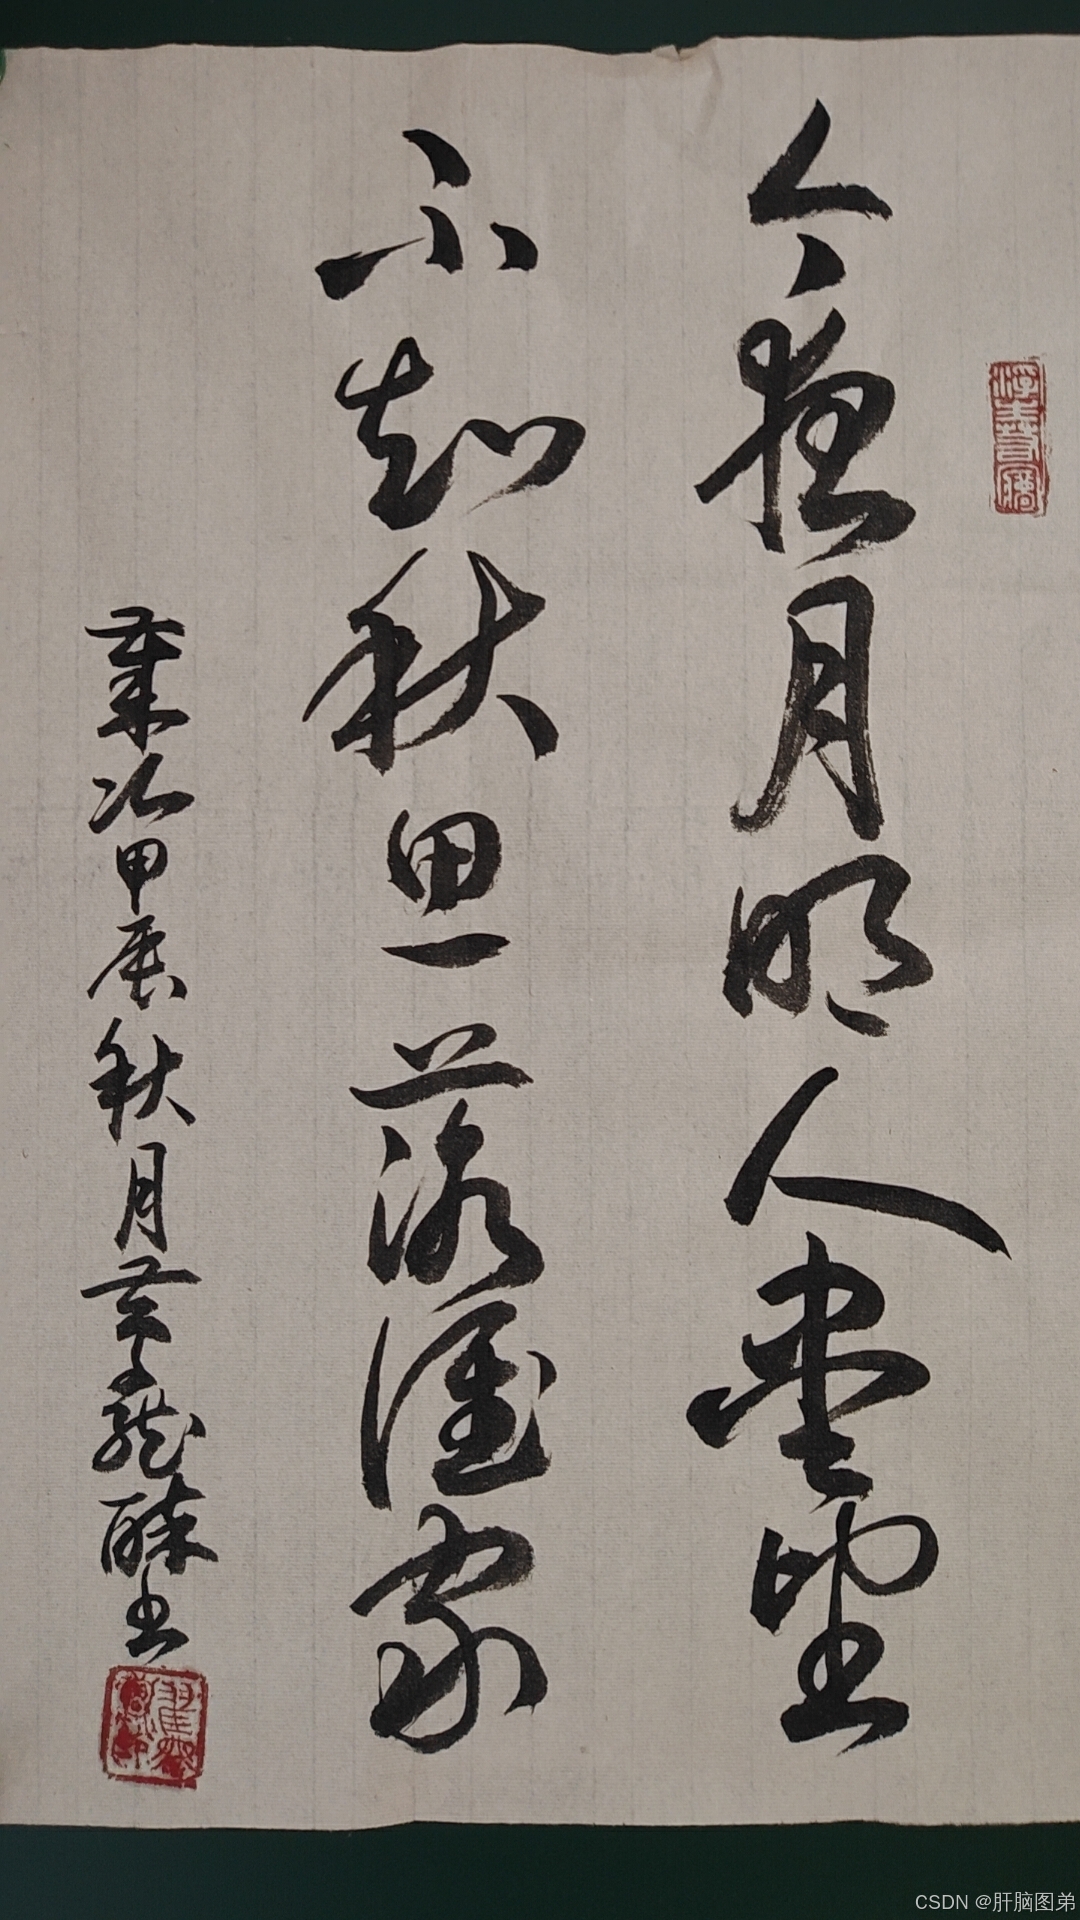 今夜月明人盡望
不知秋思落誰家
歲次甲辰秋月龍醉书
CSDN @肝脑图弟